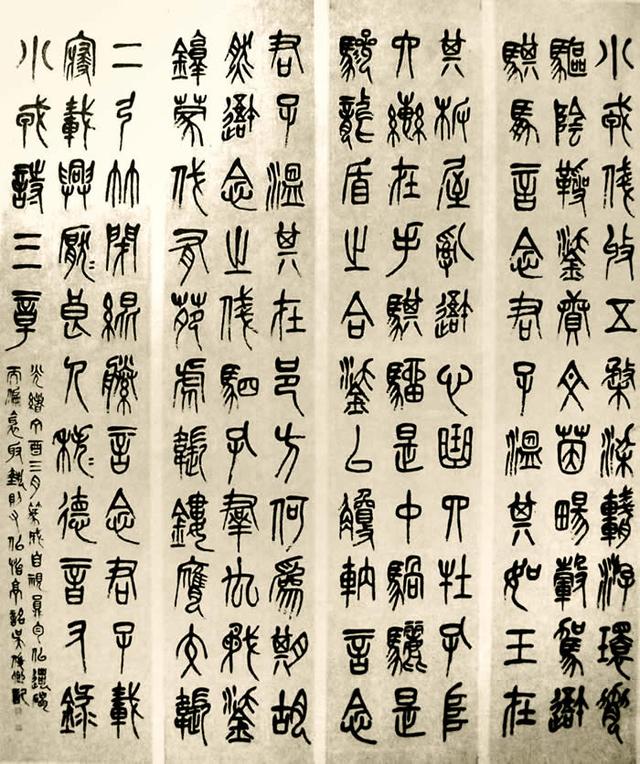 小戎俴收五楘梁輈游環脅
驅陰靷鋈續文茵暢轂駕我
騏馵言念君子溫其如玉在
其板屋亂我心曲四牡孔阜
六轡在手騏騮是中騧驪是
驂龍盾之合鋈以觼軜言念
君子溫其在邑方何為期胡
然我念之俴駟孔群厹矛鋈
錞蒙伐有苑虎韔鏤膺交韔
二弓竹閉緄縢言念君子載
寢載興厭厭良人秩秩德音又錄
小戎詩三章
光緒 酉三月篆成自視